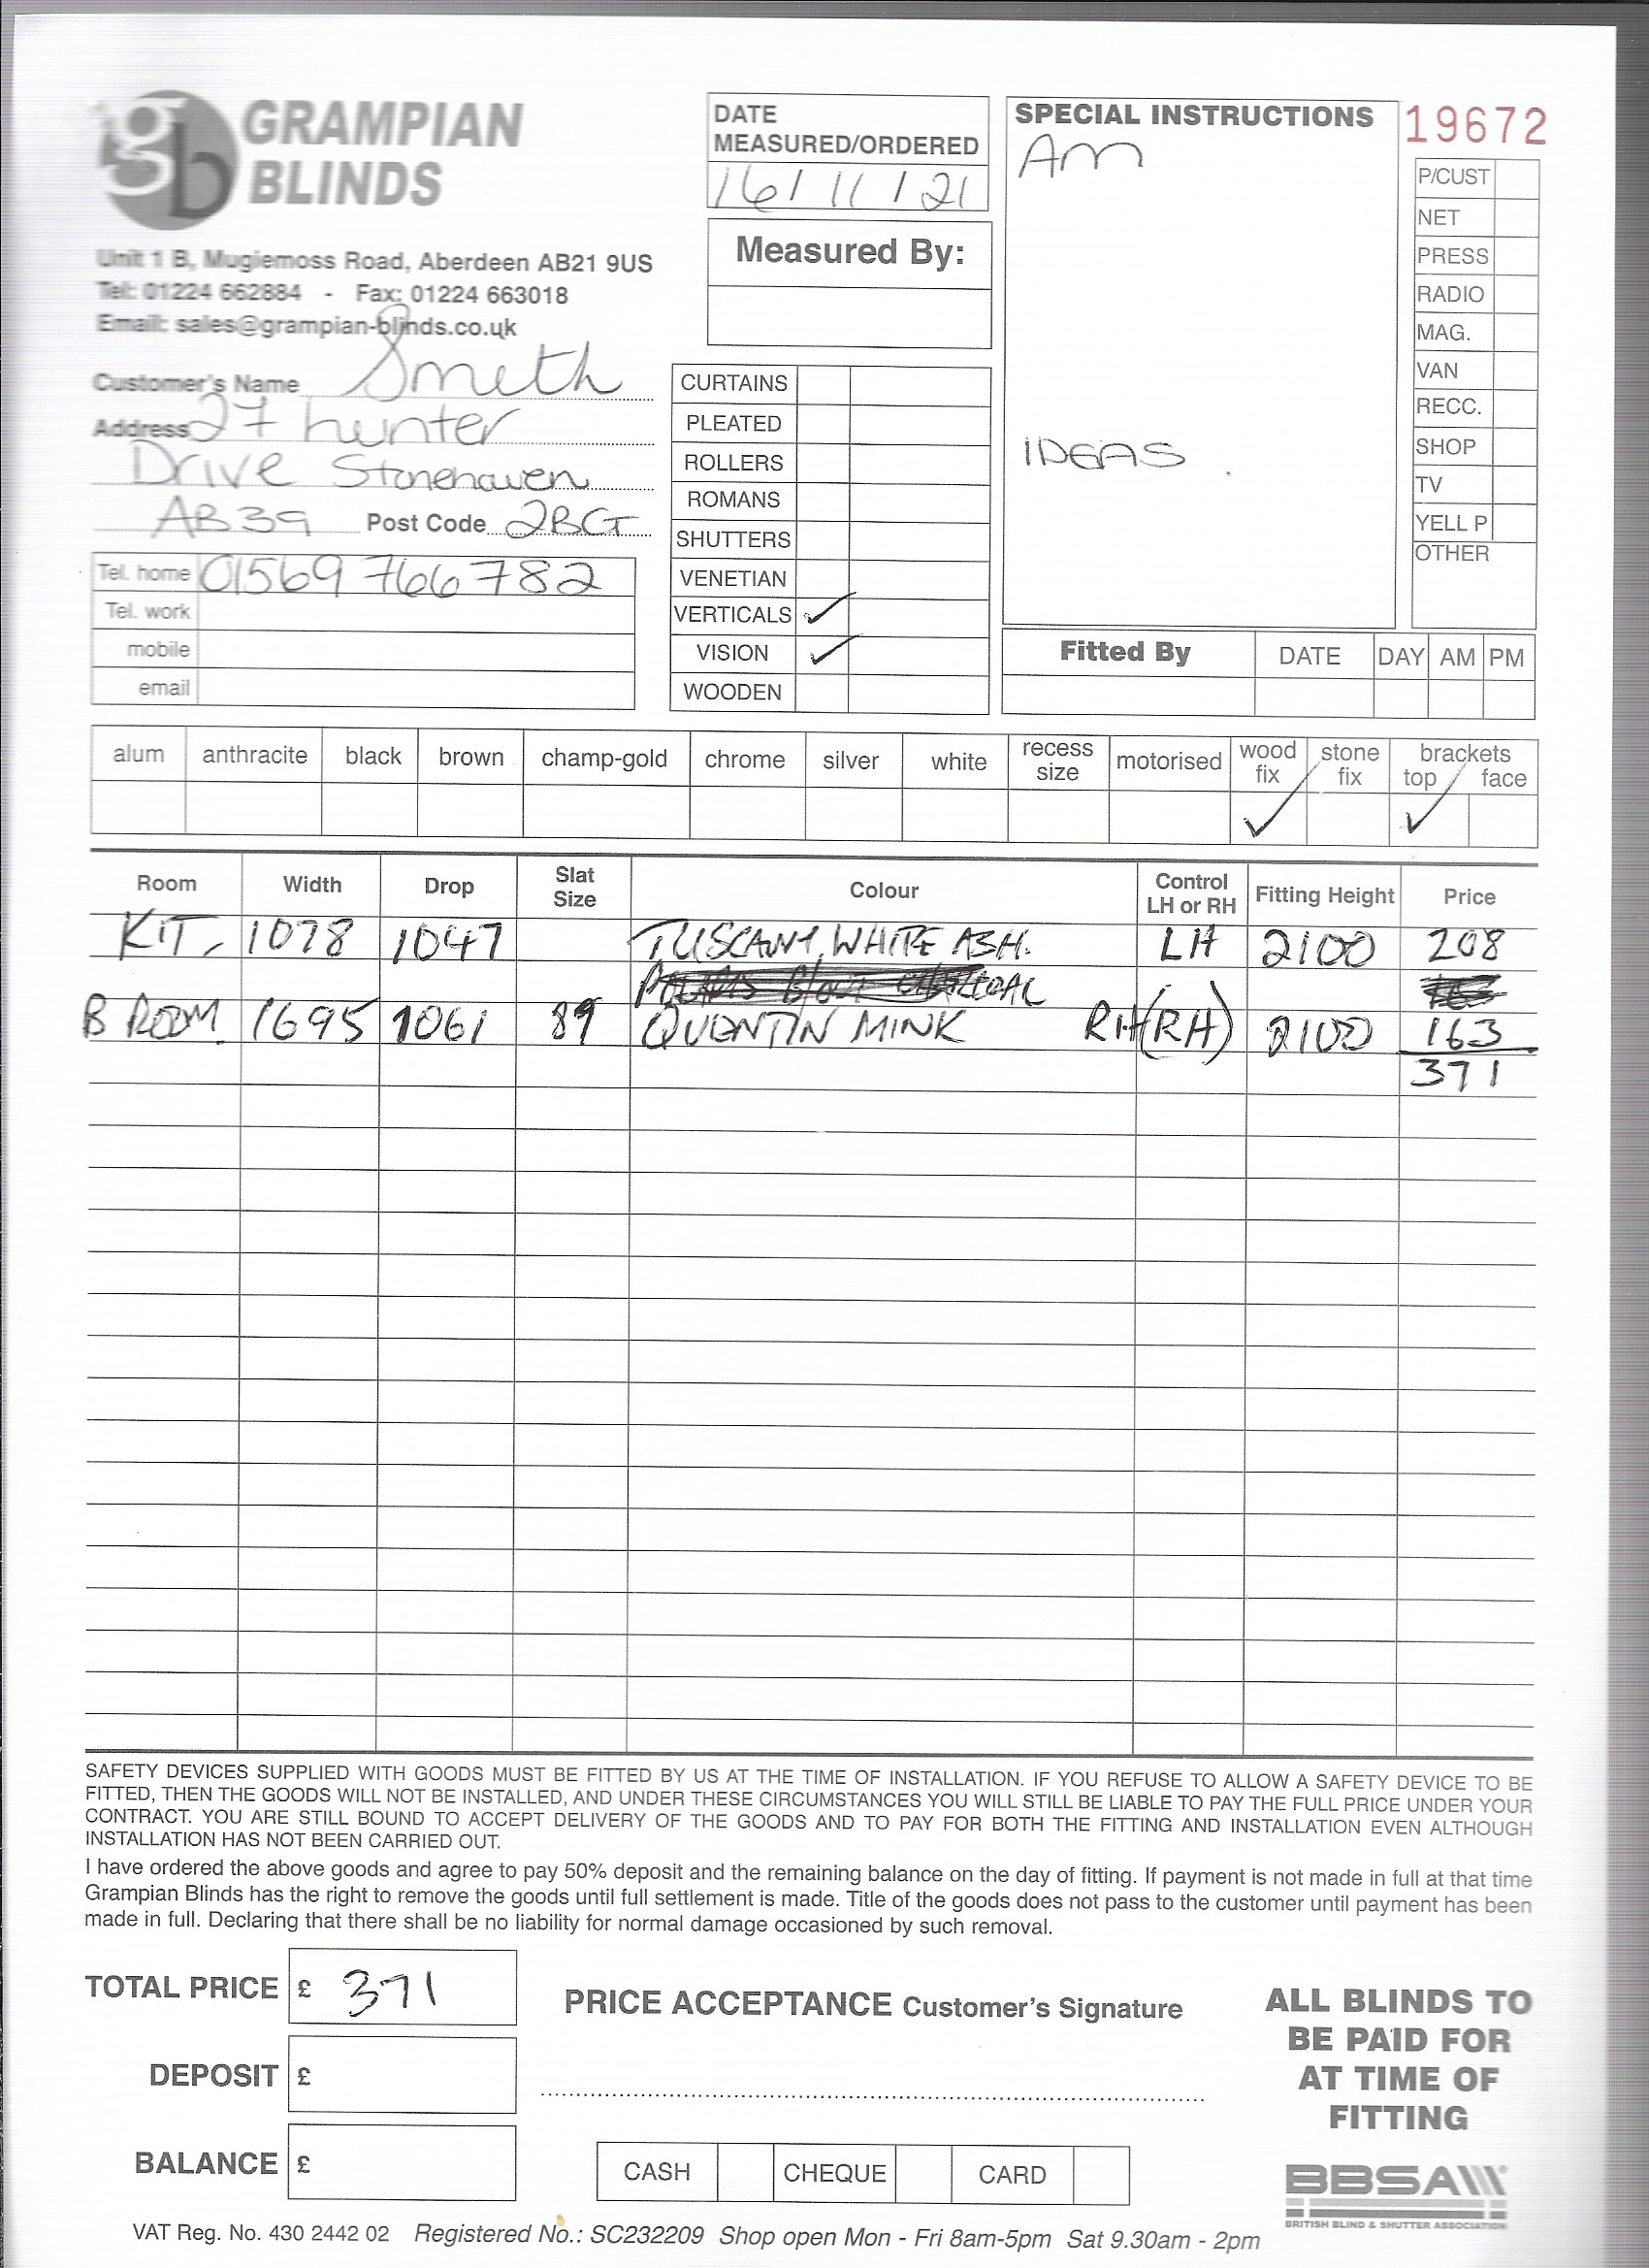 GRAMPIAN
BLINDS
Unit 1 B, Mugiemoss Road, Aberdeen AB21 9US
Tel: 01224 662884 - Fax: 01224 663018
Email: sales@grampian-blinds.co.uk
Customer's Name Smith
Address 27 hunter
Drive Stonehaven
AB39 Post Code 2BG
Tel. home 01569 766782
Tel. work
mobile
email
DATE
MEASURED/ORDERED
16/11/21
Measured By:
CURTAINS
PLEATED
ROLLERS
ROMANS
SHUTTERS
VENETIAN
VERTICALS ✓
VISION ✓
WOODEN
SPECIAL INSTRUCTIONS
Am
IDEAS.
19672
P/CUST
NET
PRESS
RADIO
MAG.
VAN
RECC.
SHOP
TV
YELL P
OTHER
Fitted By DATE DAY AM PM
alum anthracite black brown champ-gold chrome silver white recess size motorised wood fix stone fix brackets top face
✓ ✓
Room Width Drop Slat Size Colour Control LH or RH Fitting Height Price
KIT, 1078 1047 TUSCANY, WHITE ASH. LH 2100 208
B ROOM. 1695 1061 89 QUENTIN MINK RH(RH) 2100 163
371
SAFETY DEVICES SUPPLIED WITH GOODS MUST BE FITTED BY US AT THE TIME OF INSTALLATION. IF YOU REFUSE TO ALLOW A SAFETY DEVICE TO BE
FITTED, THEN THE GOODS WILL NOT BE INSTALLED, AND UNDER THESE CIRCUMSTANCES YOU WILL STILL BE LIABLE TO PAY THE FULL PRICE UNDER YOUR
CONTRACT. YOU ARE STILL BOUND TO ACCEPT DELIVERY OF THE GOODS AND TO PAY FOR BOTH THE FITTING AND INSTALLATION EVEN ALTHOUGH
INSTALLATION HAS NOT BEEN CARRIED OUT.
I have ordered the above goods and agree to pay 50% deposit and the remaining balance on the day of fitting. If payment is not made in full at that time
Grampian Blinds has the right to remove the goods until full settlement is made. Title of the goods does not pass to the customer until payment has been
made in full. Declaring that there shall be no liability for normal damage occasioned by such removal.
TOTAL PRICE £ 371
DEPOSIT £
BALANCE £
PRICE ACCEPTANCE Customer's Signature
CASH CHEQUE CARD
ALL BLINDS TO
BE PAID FOR
AT TIME OF
FITTING
BBSA
BRITISH BLIND & SHUTTER ASSOCIATION
VAT Reg. No. 430 2442 02 Registered No.: SC232209 Shop open Mon - Fri 8am-5pm Sat 9.30am - 2pm